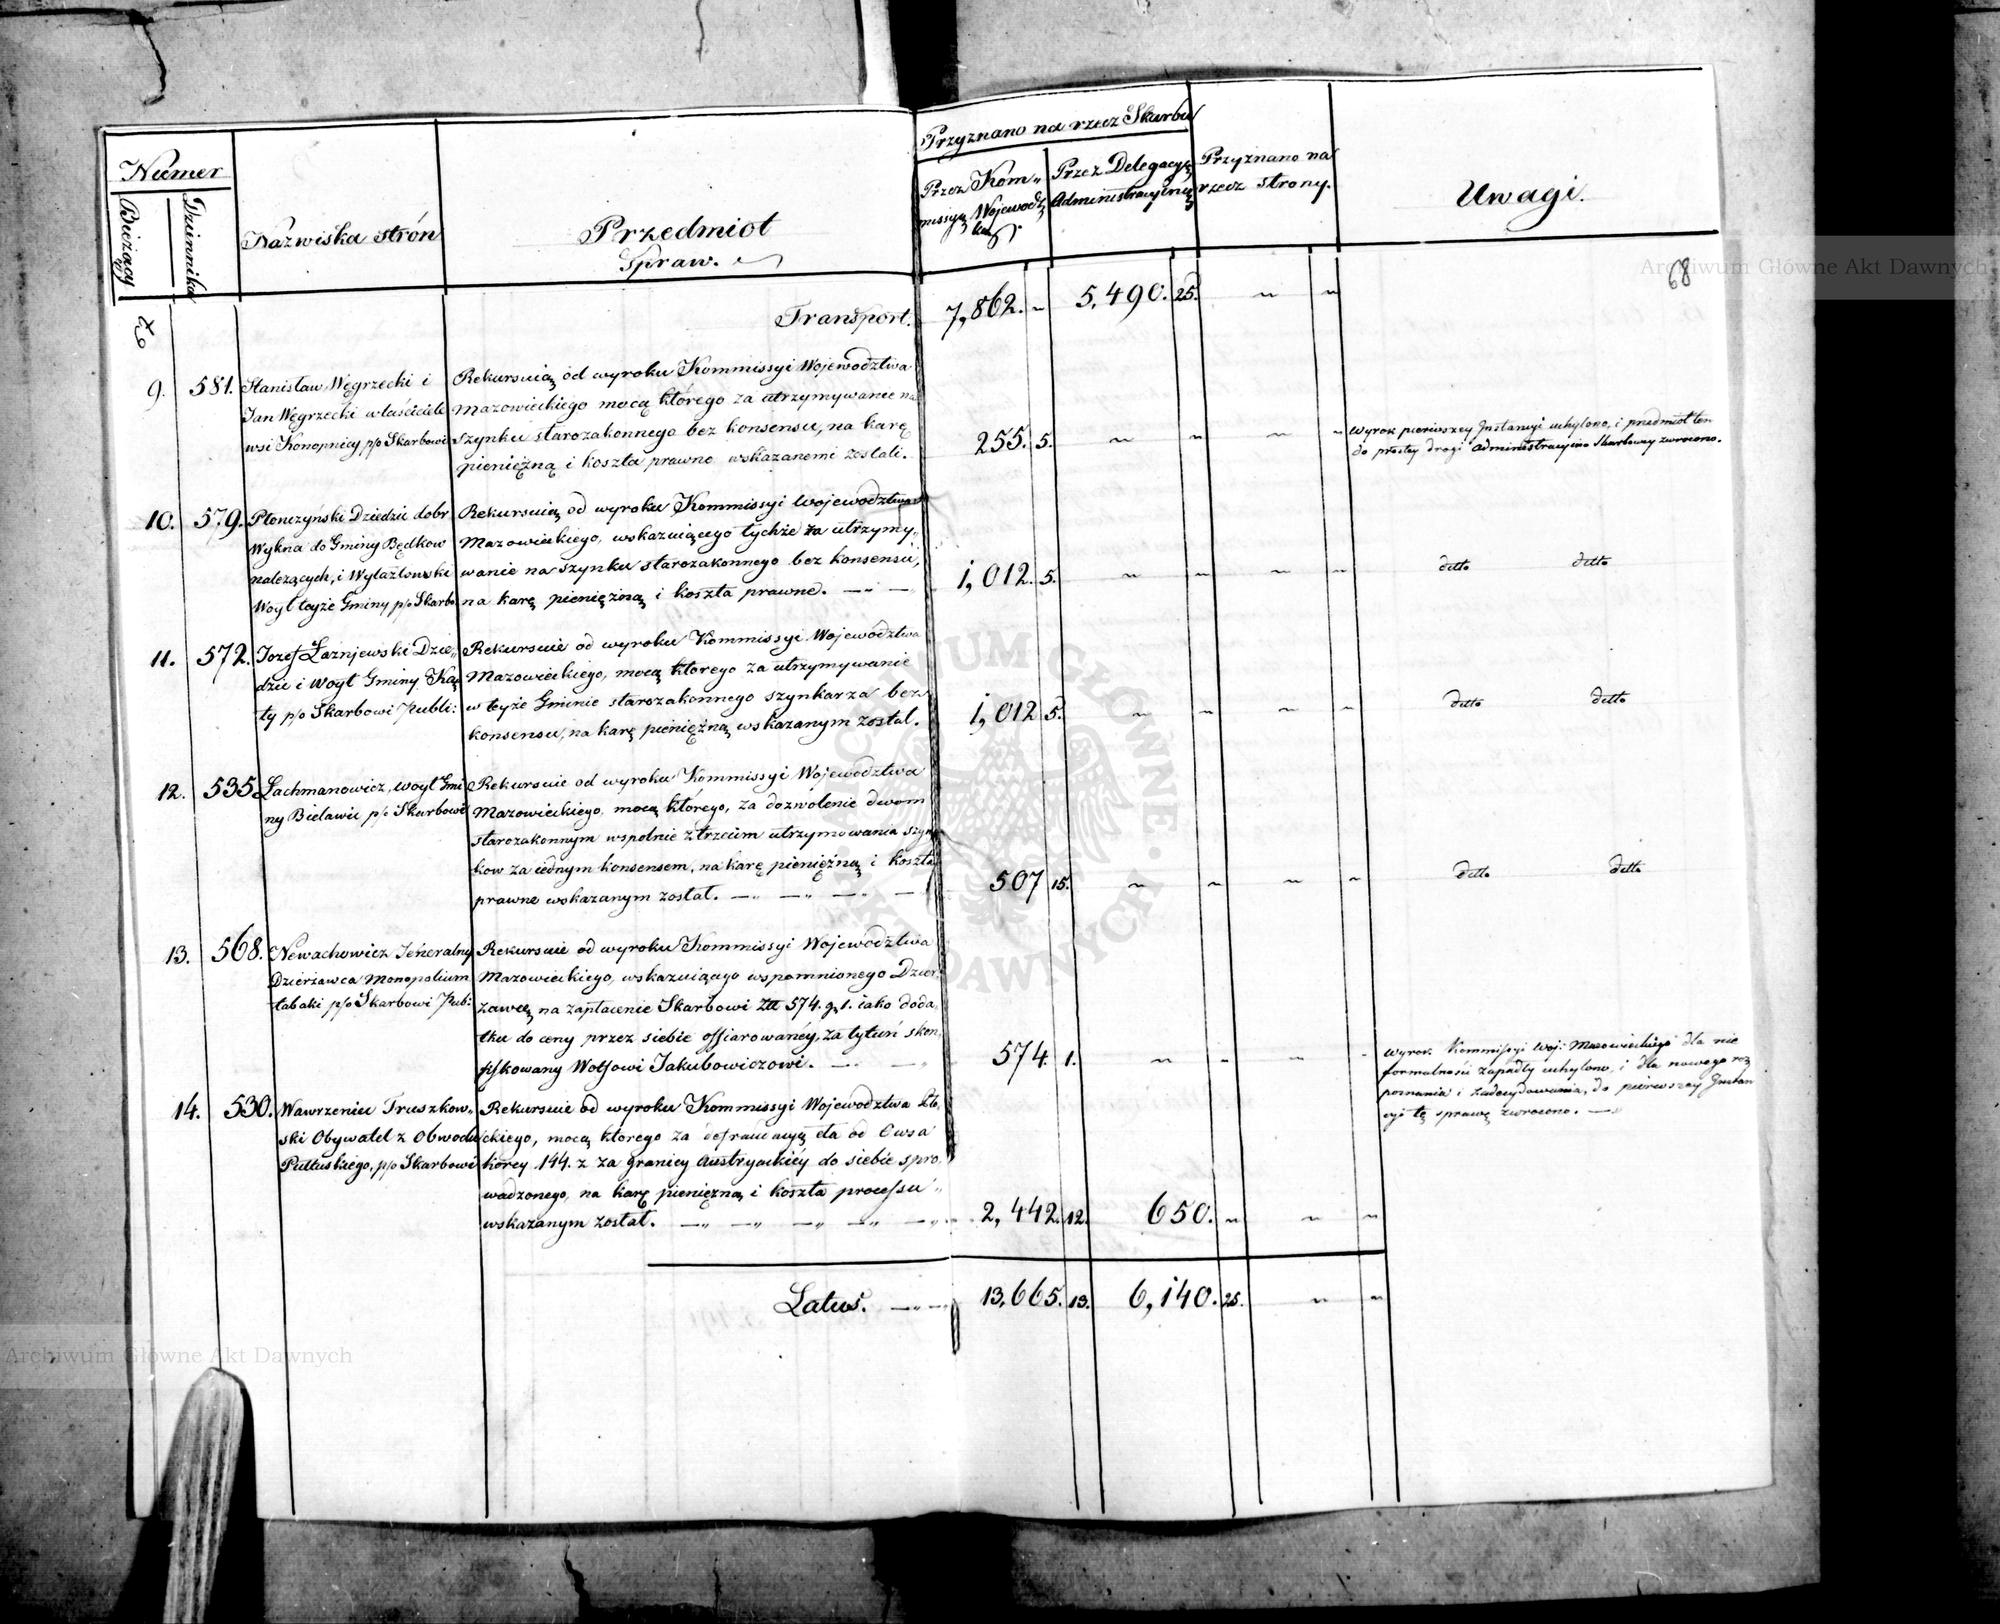 Numer
Bieżący
Dziennika
Nazwiska strón
Przedmiot
Spraw.
Przyznano na rzecz Skarbu
Przez Kom-
missyą Wojewodz
ką.
Przez Delegacyą
Administracyiną
Przyznano na
rzecz strony.
Uwagi.
68
Transport. 7,862. 5,490. 25.
9. 581. Stanisław Węgrzecki i
Jan Węgrzecki właściciele
wsi Konopnicy p/o Skarbowi
Rekursuią od wyroku Kommissyi Wojewodztwa
Mazowieckiego mocą którego za utrzymywanie na
szynku starozakonnego bez konsensu, na karę
pieniężną i koszta prawne wskazanemi zostali.
255. 5.
Wyrok pierwszey Instancyi uchylono, i przedmiot ten
do prostey drogi Administracyino Skarbowey zwrocono.
10. 579. Płonczyński Dziedzic dobr
Wykna do Gminy Będkow
nalezących, i Wylazłowski
Woyt teyże Gminy p/o Skarbo
Rekursuią od wyroku Kommissyi Wojewodztwa
Mazowieckiego, wskazuiącego tychże za utrzymy-
wanie na szynku starozakonnego bez konsensu,
na karę pieniężną i koszta prawne.
1,012. 5.
detto detto
11. 572. Jozef Łaznjewski Dzie-
dzic i Woyt Gminy Ką
ty p/o Skarbowi Publi:
Rekursuie od wyroku Kommissyi Wojewodztwa
Mazowieckiego, mocą ktorego za utrzymywanie
w teyże Gminie starozakonnego szynkarza bez
konsensu, na karę pieniężną wskazanym został.
1,012 5.
detto detto
12. 535. Lachmanowicz, Woyt Gmi
ny Bielawic p/o Skarbowi
Rekursuie od wyroku Kommissyi Wojewodztwa
Mazowieckiego, mocą którego, za dozwolenie dwom
starozakonnym wspolnie z trzecim utrzymowania szyn
kow za iednym konsensem, na karę pieniężną i koszta
prawne wskazanym został.
507 15.
detto detto
13. 568. Newachowicz Jeneralny
Dzierżawca Monopolium
tabaki p/o Skarbowi Pub:
Rekursuie od wyroku Kommissyi Wojewodztwa
Mazowieckiego, wskazuiącego wspomnionego Dzier-
zawcę na zapłacenie Skarbowi Złł 574. g. 1. iako doda
tku do ceny przez siebie offiarowanéy, za tytuń skon
fiskowany Wolfowi Jakubowiczowi.
574 1.
Wyrok Kommissyi Woj: Mazowieckiego dla nie
formalności zapadły uchylono, i dla nowego roz
poznania i zadecydowania, do pierwszey Instan
cyi tę sprawę zwrocono.
14. 530. Wawrzeniec Truszkow-
ski Obywatel z Obwodu
Pułtuskiego, p/o Skarbowi
Rekursuie od wyroku Kommissyi Wojewodztwa Pło
ckiego, mocą ktorego za defraudacyą cła od Owsa
korcy 144. z za granicy Austryackiéy do siebie spro
wadzonego, na karę pieniężną i koszta processu
wskazanym został.
2,442. 12. 650.
Latus. 13,665. 13. 6,140. 25.
Archiwum Główne Akt Dawnych
Archiwum Główne Akt Dawnych
ARCHIWUM GŁÓWNE AKT DAWNYCH